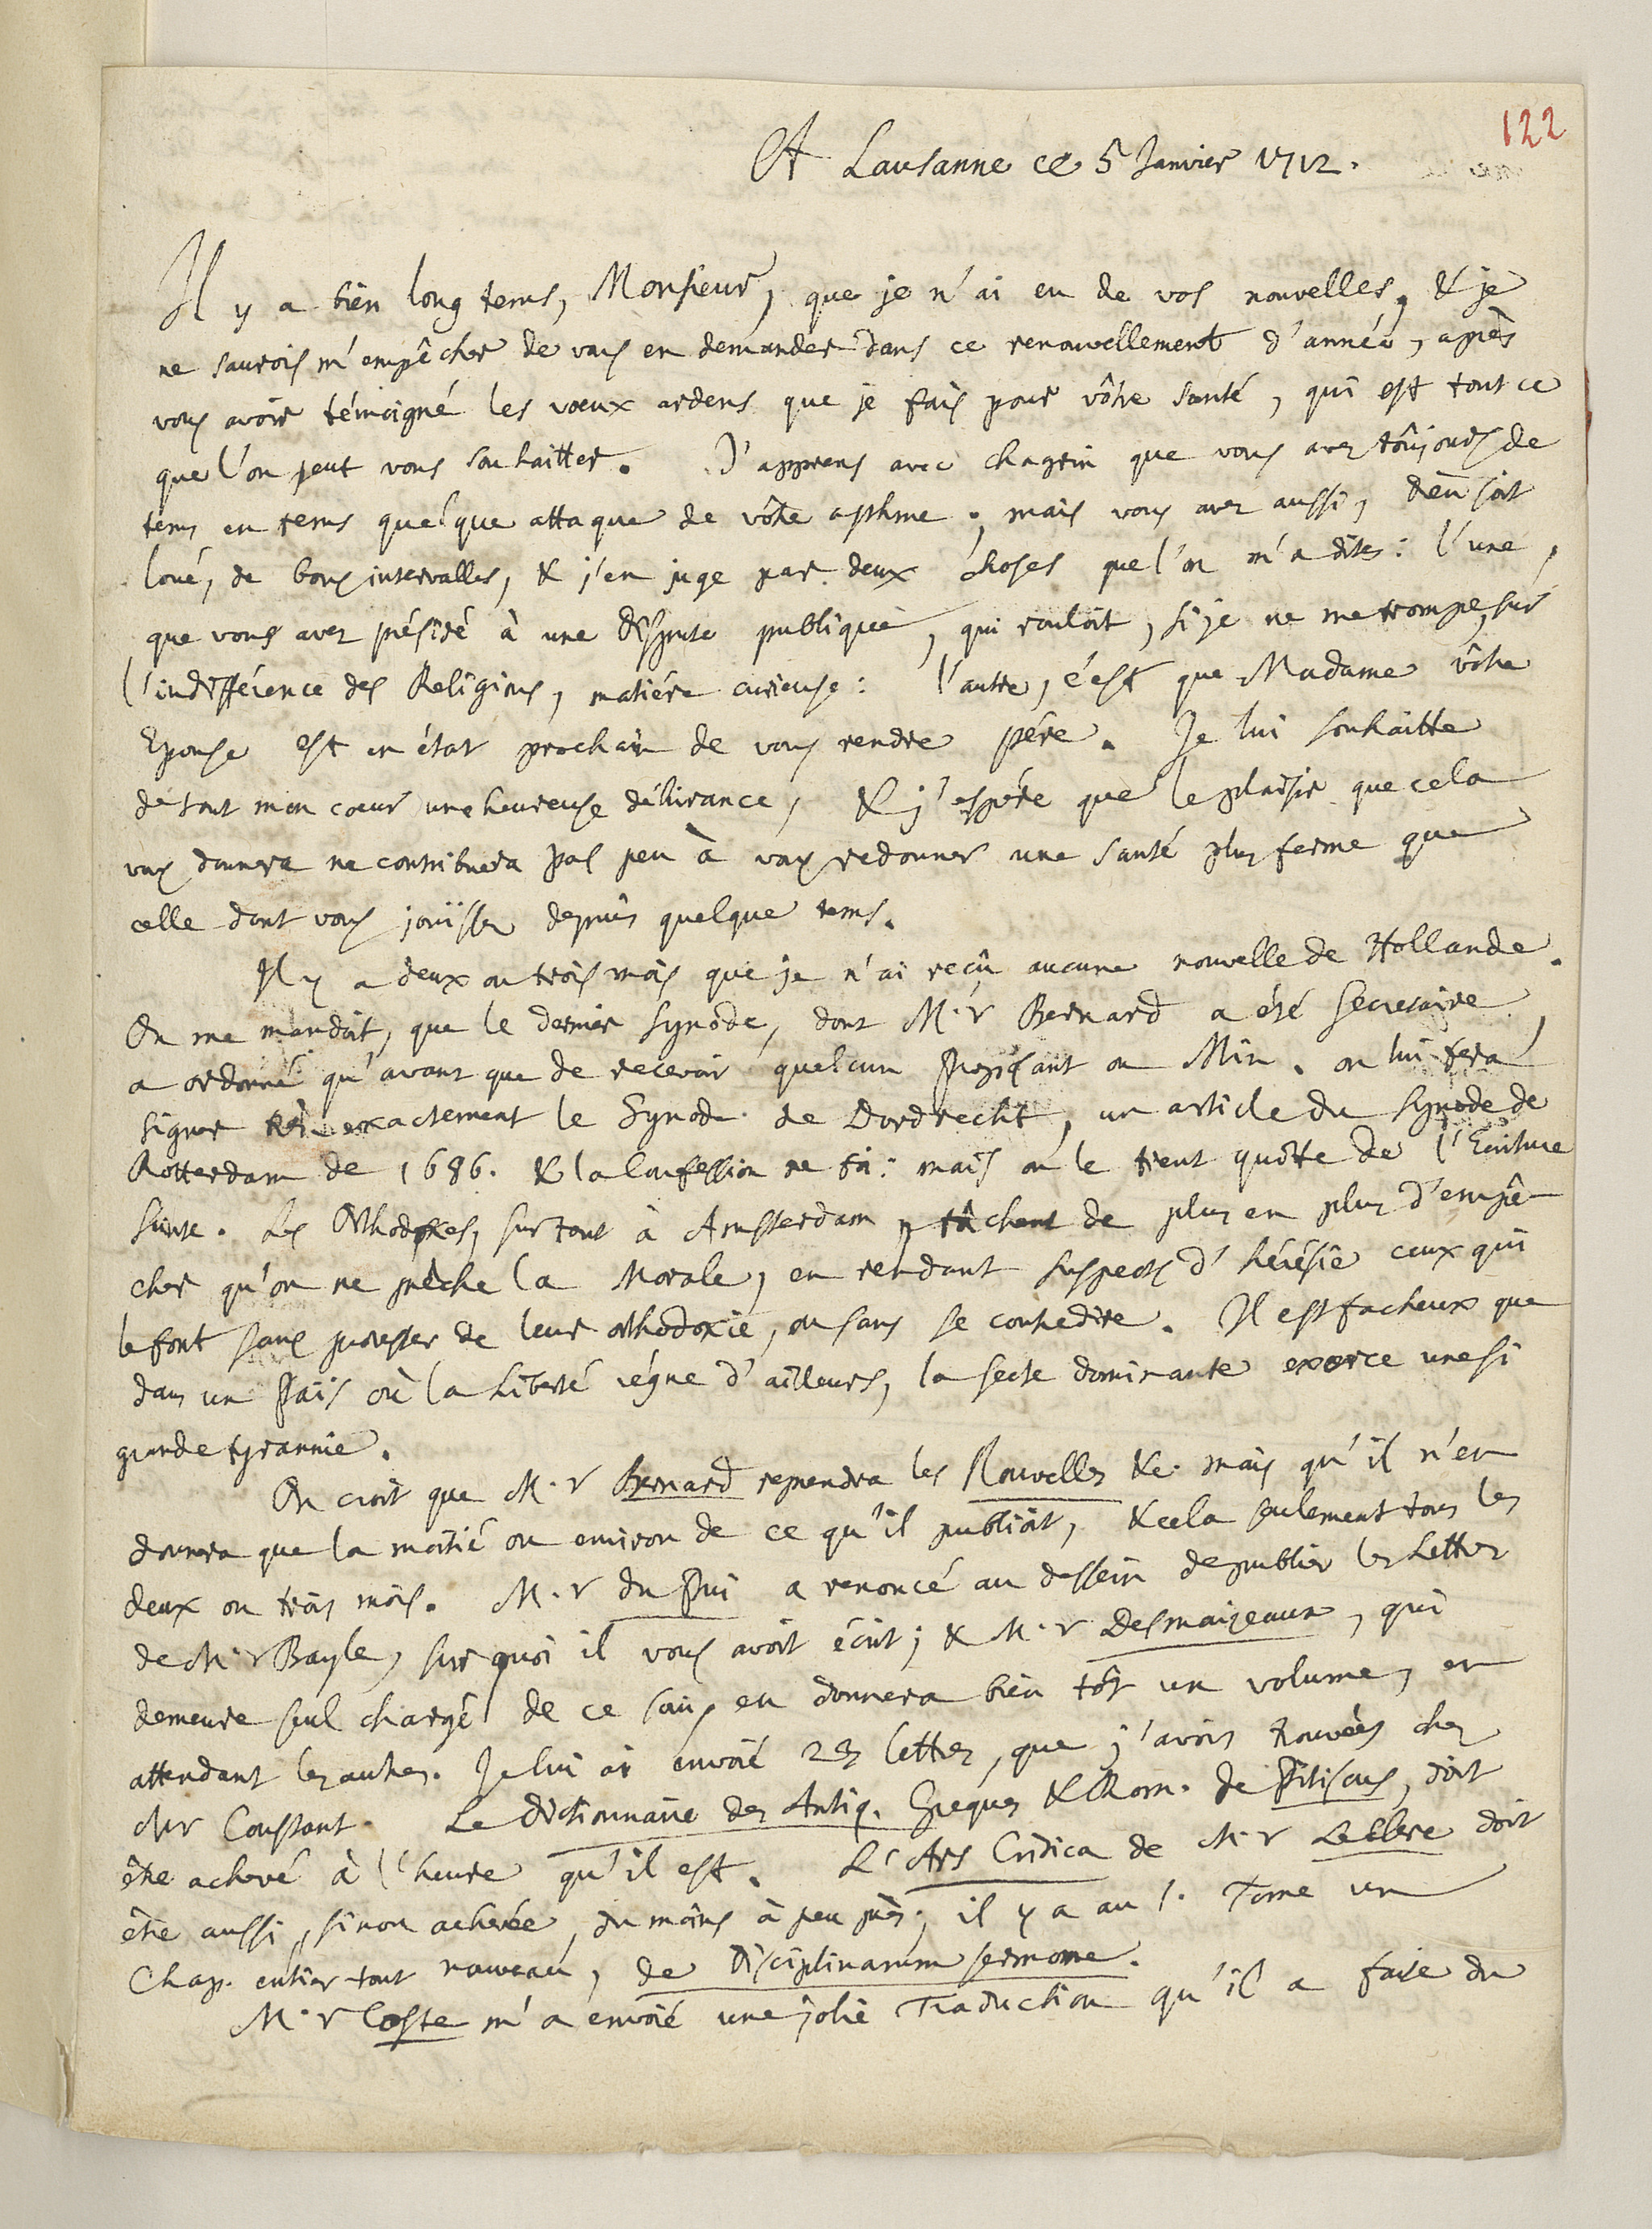 122
A Lausanne ce 5 Janvier 1712.
Il y a bien long tems, Monsieur, que je n'ai eu de vos nouvelles, & je
ne saurois m'empêcher de vous en demander dans ce renouvellement d'année, après
vous avoir témoigné les vœux ardens que je fais pour vôtre santé, qui est tout ce
que l'on peut vous souhaitter. J'apprens avec chagrin que vous avez toûjours de
tems en tems quelque attaque de vôtre asthme; mais vous avez aussi, Dieu soit
loué, de bons intervalles, & j'en juge par deux choses que l'on m'a dites: l'une,
que vous avez présidé à une dispute publique, qui rouloit, si je ne me trompe, sur
l'indifférence des Religions, matiére curieuse: l'autre, c'est que Madame vôtre
Epouse est en état prochain de vous rendre pére. Je lui souhaitte
de tout mon cœur une heureuse délivrance, & j'espére que le plaisir que cela
vous donnera ne contribuera pas peu à vous redonner une santé plus ferme que
celle dont vous jouïssez depuis quelque tems.
Il y a deux ou trois mois que je n'ai reçû aucune nouvelle de Hollande.
On me mandoit, que le dernier Synode, dont M.r Bernard a été Secretaire,
a ordonné qu'avant que de recevoir quelcun Proposant ou Min. on lui fera
signer très exactement le Synode de Dordrecht, un article du Synode de
Rotterdam de 1686. & la Confession de foi: mais on le tient quitte de l'Ecriture
Sainte. Les Orthodoxes, surtout à Amsterdam, tâchent de plus en plus d'empê-
cher qu'on ne prêche la Morale, en rendant suspects d'hérésie ceux qui
le font sans protester de leur orthodoxie, ou sans se contredire. Il est facheux que
dans un Païs où la Liberté régne d'ailleurs, la secte dominante exerce une si
grande tyrannie.
On croit que M.r Bernard reprendra les Nouvelles &c. mais qu'il n'en
donnera que la moitié ou environ de ce qu'il publioit, & cela seulement tous les
deux ou trois mois. M.r du Pui a renoncé au dessein de publier les Lettres
de M.r Bayle, sur quoi il vous avoit écrit; & M.r Desmaizeaux, qui
demeure seul chargé de ce soin, en donnera bien tôt un volume, en
attendant les autres. Je lui ai envoié 23 lettres, que j'avois trouvées chez
Mr Constant. Le Dictionnaire des Antiq. Gréques & Rom. de Pitiscus, doit
être achevé à l'heure qu'il est. L'Ars Critica de M.r Le Clerc doit
être aussi, sinon achevée, du moins à peu près; il y a au I. Tome un
Chap. entier tout nouveau, de Disciplinarum sermone.
M.r Coste m'a envoié une jolie Traduction qu'il a faite du